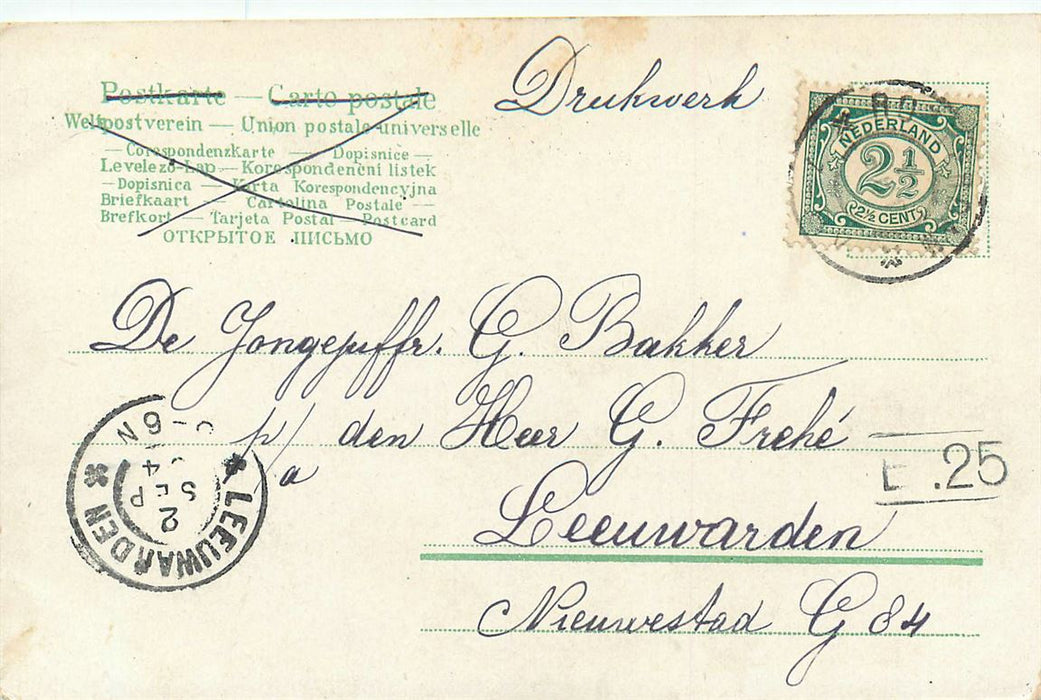 Drukwerk
Postkarte — Carte postale
Weltpostverein — Union postale universelle
— Corespondenzkarte — Dopisnice —
Levelező-Lap — Korespondenční listek
— Dopisnica — Karta Korespondencyjna
Briefkaart — Cartolina Postale —
Brefkort — Tarjeta Postal — Postcard
ОТКРЫТОЕ ПИСЬМО
NEDERLAND
2½
2½ CENT
De Jongejuffr. G. Bakker
p/a den Heer G. Frehé
Leeuwarden
Nieuwestad G 84
LEEUWARDEN
2 SEP
04
-6N
.25